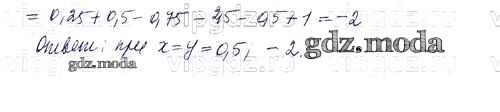 = 0,25 + 0,5 - 0,75 - 2,5 - 0,5 + 1 = -2
Ответ: при x = y = 0,5, -2.
gdz.moda
gdz.moda